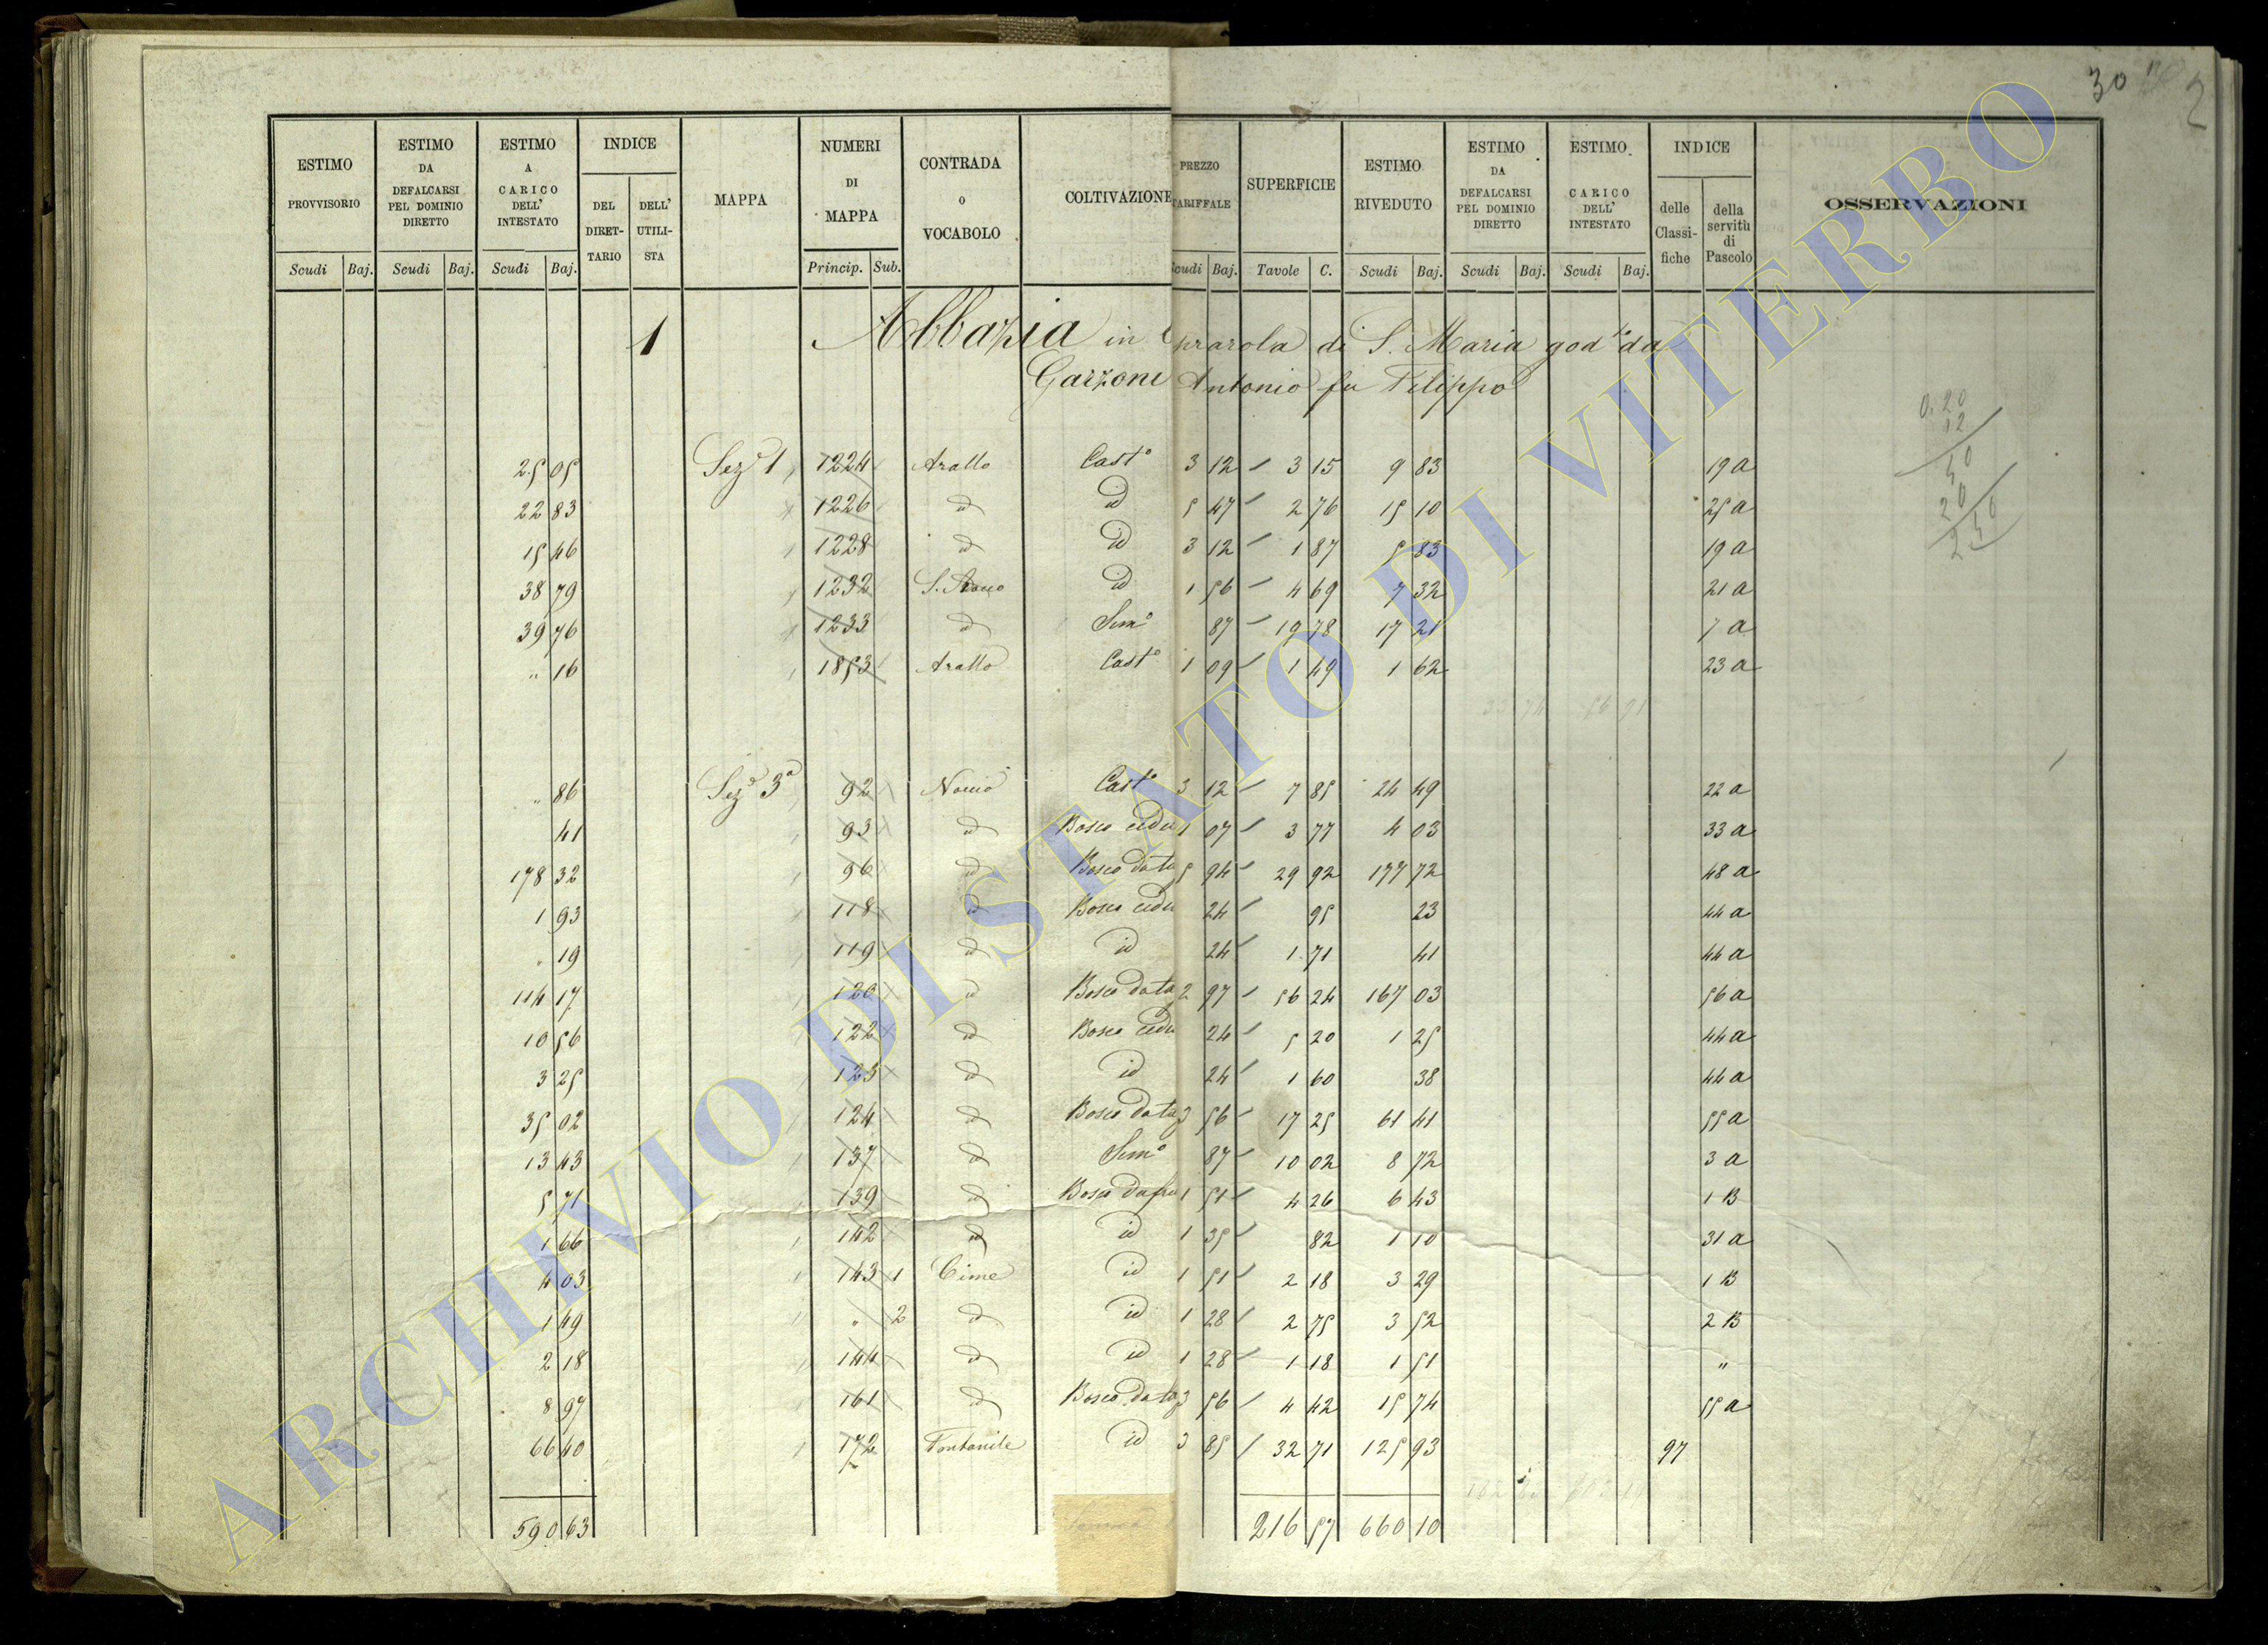 30
2
ESTIMO PROVVISORIO | ESTIMO DA DEFALCARSI PEL DOMINIO DIRETTO | ESTIMO A CARICO DELL' INTESTATO | INDICE | MAPPA | NUMERI DI MAPPA | CONTRADA O VOCABOLO | COLTIVAZIONE | PREZZO TARIFFALE | SUPERFICIE | ESTIMO RIVEDUTO | ESTIMO DA DEFALCARSI PEL DOMINIO DIRETTO | ESTIMO CARICO DELL' INTESTATO | INDICE | OSSERVAZIONI
DEL DIRETTARIO | DELL' UTILISTA | delle Classifiche | della servitù di Pascolo
Scudi Baj. Scudi Baj. Scudi Baj. Princip. Sub. Scudi Baj. Tavole C. Scudi Baj. Scudi Baj. Scudi Baj.
1 Abbazia in Caprarola di S. Maria god.ta da
Garzoni Antonio fu Filippo
25 05 Sez.e 1 1224 Arallo Cast.o 3 12 3 15 9 83 19 a
22 83 1226 id id 5 47 2 76 15 10 25 a
15 46 1228 id id 3 12 1 87 5 83 19 a
38 79 1232 S. Rocco id 1 56 4 69 7 32 21 a
39 76 1233 id Sem.o 87 19 78 17 21 7 a
" 16 1853 Arallo Cast.o 1 09 1 49 1 62 23 a
" 86 Sez.e 3a 92 Cast.o 3 12 7 85 24 49 22 a
41 93 id Bosco cedu 1 07 3 77 4 03 33 a
178 32 96 id Bosco da ta 5 94 29 92 177 72 48 a
1 93 118 id Bosco cedu 24 95 23 44 a
" 19 119 id id 24 1 71 41 44 a
114 17 120 id Bosco da ta 2 97 56 24 167 03 56 a
10 56 122 id Bosco cedu 24 5 20 1 25 44 a
3 25 123 id id 24 1 60 38 44 a
35 02 124 id Bosco da ta 3 56 17 25 61 41 55 a
13 43 137 id Sem.o 87 10 02 8 72 3 a
5 71 139 id Bosco da fru 1 51 4 26 6 43 1 B
1 66 142 id id 1 35 82 1 10 31 a
4 03 143 1 Cime id 1 51 2 18 3 29 1 B
1 49 " 2 id id 1 28 2 75 3 52 2 B
2 18 144 id id 1 28 1 18 1 51 "
8 97 161 id Bosco da ta 3 56 4 42 15 74 55 a
66 40 172 Fontanile id 3 85 32 71 125 93 97
590 63 216 57 660 10
0. 20
12
20
ARCHIVIO DI STATO DI VITERBO